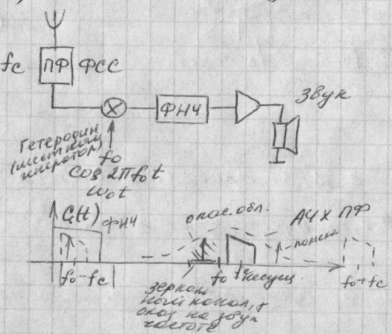 fc ПФ ФСС
ФНЧ
Звук
Гетеродин
(местный
генератор)
f₀
cos 2πf₀t
ω₀t
C(t) ФНЧ
опас. обл.
АЧХ ПФ
помеха
f₀-fc
f₀
f₀+fc
зеркаль
ный канал,
на звук
частота